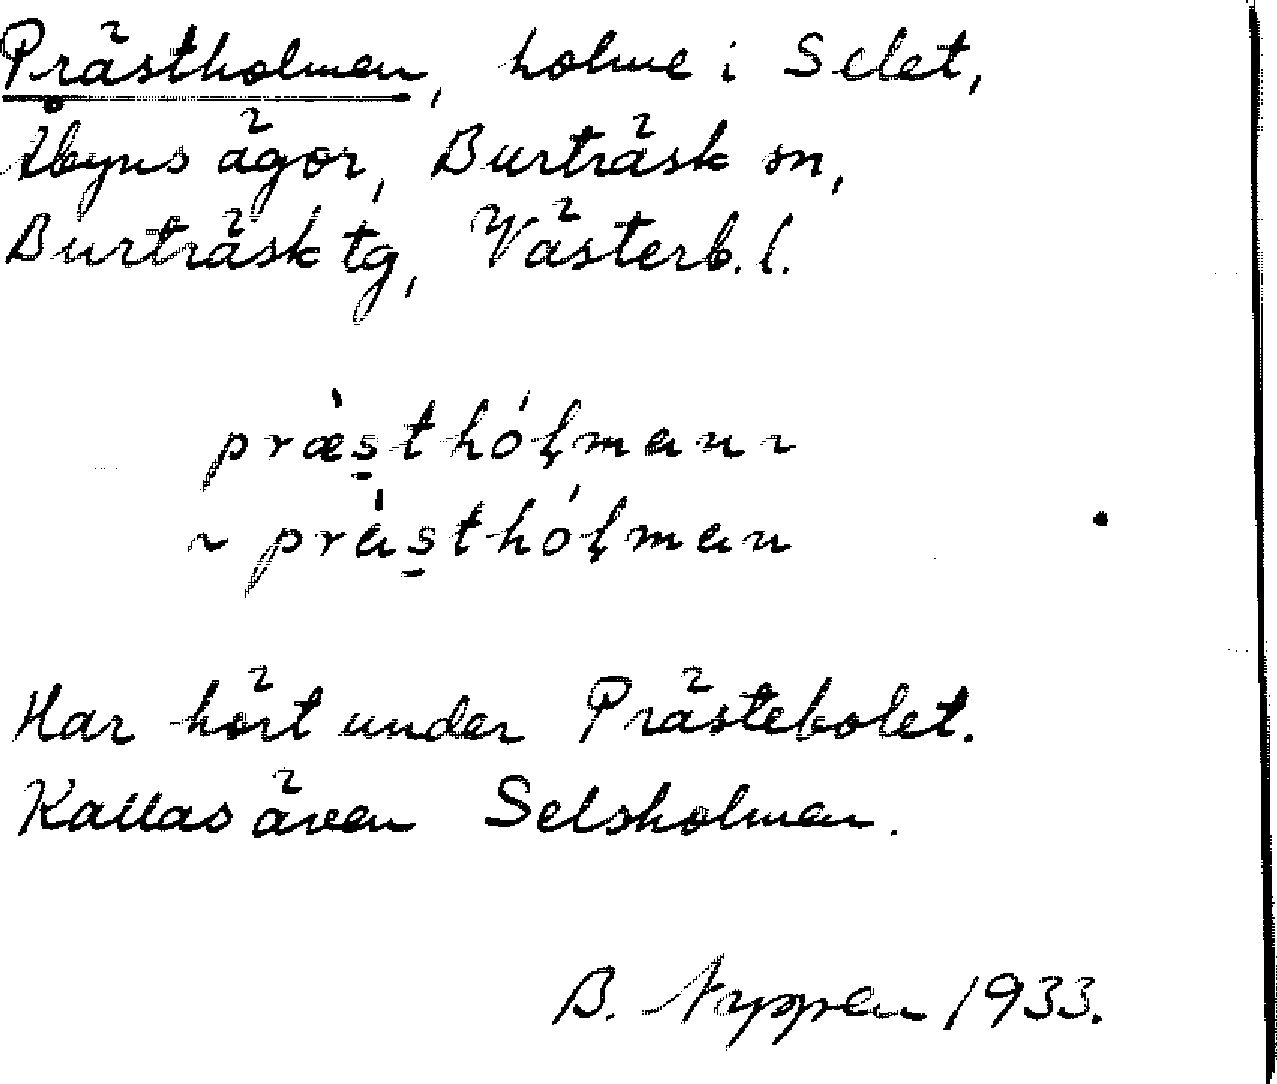 Prästholmen, holme i Selet,
Åbyns ägor, Burträsk sn,
Burträsk tg, Västerb. l.
præ̀s̠thóļmenn ~
~ prà̀s̠thóļmen
Har hört under Prästebolet.
Kallas även Selsholmen.
B. Nyppen 1933.